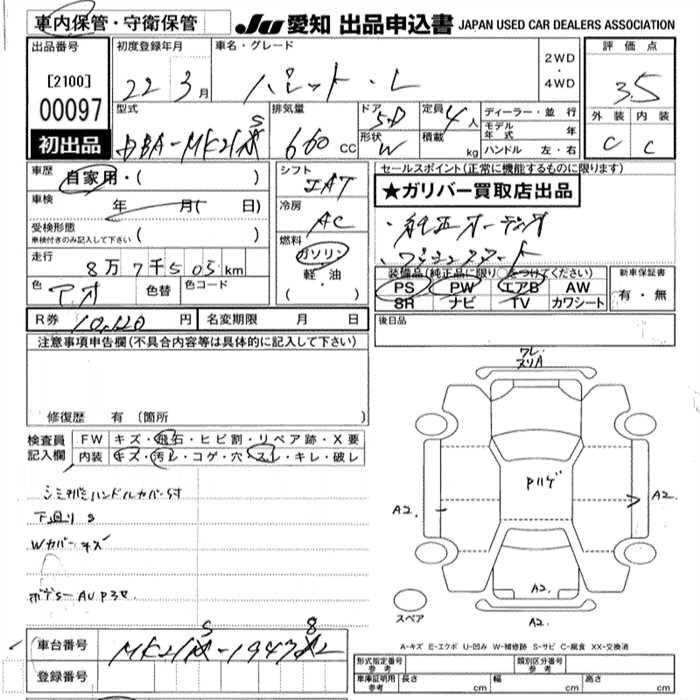 車内保管・守衛保管
JU 愛知 出品申込書 JAPAN USED CAR DEALERS ASSOCIATION
出品番号
[2100]
00097
初出品
初度登録年月
22 3月
車名・グレード
パレット・L
2WD
・
4WD
評価点
3.5
外装 内装
C C
型式
DBA-MK21S
排気量
660 cc
ドア
5D
形状
W
定員 4人
積載 kg
ディーラー・並行
モデル年式 年
ハンドル 左・右
車歴 自家用・( )
車検 年 月( 日)
受検形態
車検付きのみ記入して下さい ( )
走行 8万7千505km
色 アオ 色替 色コード
シフト
IAT
冷房
AC
燃料
ガソリン
軽・油
( ・ )
セールスポイント(正常に機能するものに限ります)
★ガリバー買取店出品
・純正オーディオ
・プッシュスタート
装備品(純正品に限り○をつけてください)
PS PW エアB AW
SR ナビ TV カワシート
新車保証書
有・無
R券 10,120円 名変期限 月 日
後日品
注意事項申告欄(不具合内容等は具体的に記入して下さい)
修復歴 有 (箇所 )
検査員記入欄
FW キズ・飛石・ヒビ割・リペア跡・X要
内装 キズ・汚レ・コゲ・穴・スレ・キレ・破レ
ハンドルカバー付
下廻りS
Wカバーキズ
ワレ
ヌリA
Pハゲ
A2.
A2.
A2.
A2.
スペア
A-キズ E-エクボ U-凹み W-補修跡 S-サビ C-腐食 XX-交換済
車台番号
登録番号
形式指定番号 参考
類別区分番号 参考
車庫証明用 参考 長さ cm 幅 cm 高さ cm